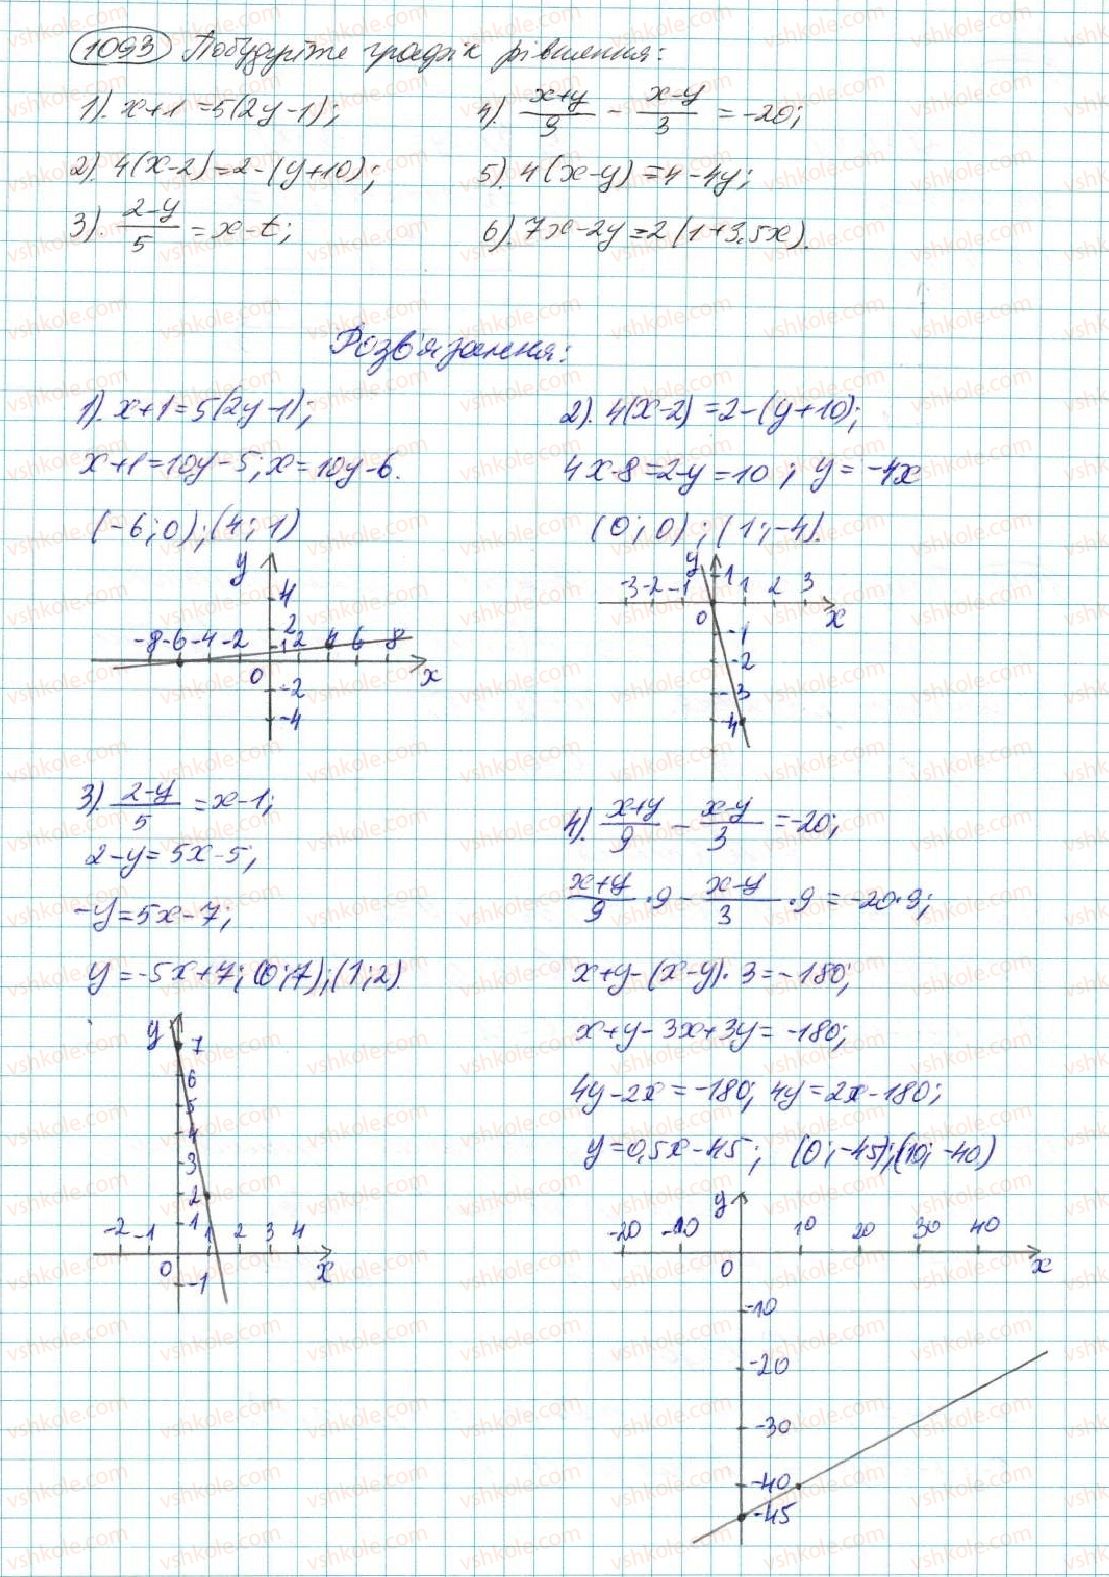 1093 Побудуйте графік рівняння:
1). x+1=5(2y-1);
4). (x+y)/9 - (x-y)/3 = -20;
2). 4(x-2)=2-(y+10);
5). 4(x-y)=4-4y;
3). (2-y)/5 = x-t;
6). 7x-2y=2(1+3,5x).
Розв'язання:
1). x+1=5(2y-1);
x+1=10y-5; x=10y-6.
(-6;0);(4;1)
2). 4(x-2)=2-(y+10);
4x-8=2-y=10; y=-4x
(0;0);(1;-4).
y
4
2
1
-8 -6 -4 -2
2 4 6 8
0
x
-2
-4
y
1
-3 -2 -1
1 2 3
0
x
-1
-2
-3
-4
3). (2-y)/5 = x-1;
2-y=5x-5;
-y=5x-7;
y=-5x+7; (0;7);(1;2).
4). (x+y)/9 - (x-y)/3 = -20;
(x+y)/9 · 9 - (x-y)/3 · 9 = -20·9;
x+y-(x-y)·3=-180;
x+y-3x+3y=-180;
4y-2x=-180; 4y=2x-180;
y=0,5x-45; (0;-45);(10;-40)
y
7
6
5
4
3
2
1
-2 -1
1 2 3 4
0
x
-1
y
-20 -10
10 20 30 40
0
x
-10
-20
-30
-40
-45
vshkole.com